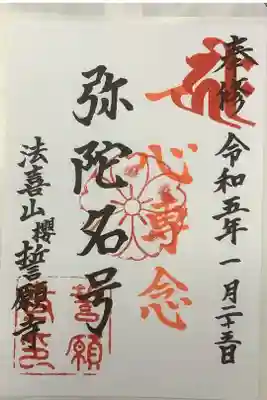 奉修 令和五年一月二十五日
一心專念
弥陀名号
法喜山櫻誓願寺
誓願
寺印